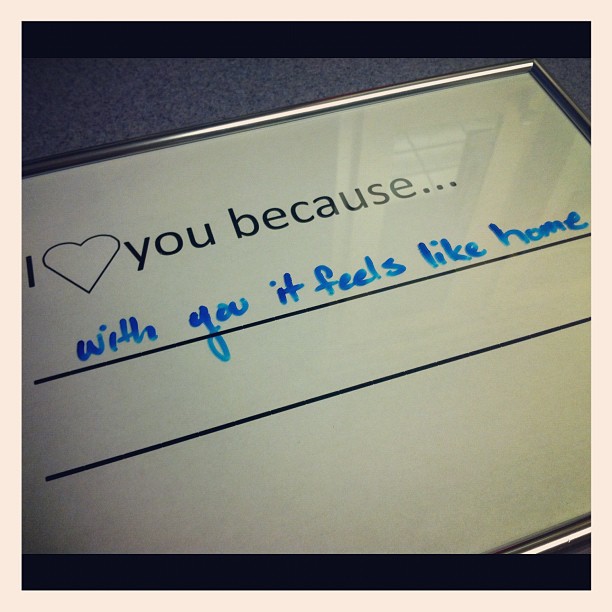 I ♡ you because...
with you it feels like home